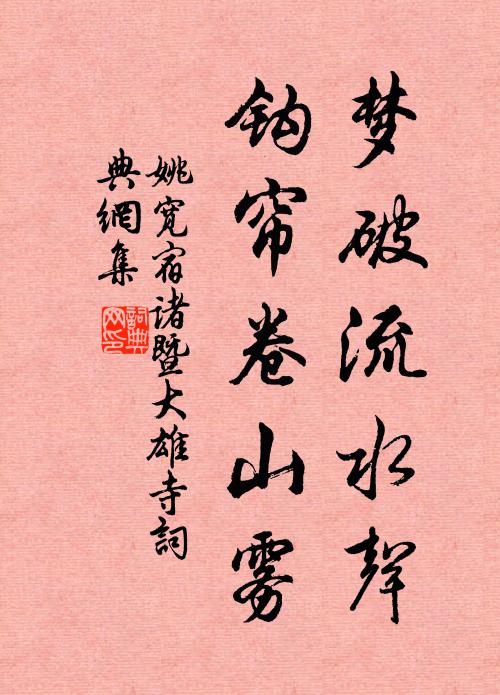 梦破流水聲
钩帘卷山雾
姚寬宿诸暨大雄寺詞
典網集
詞典网印